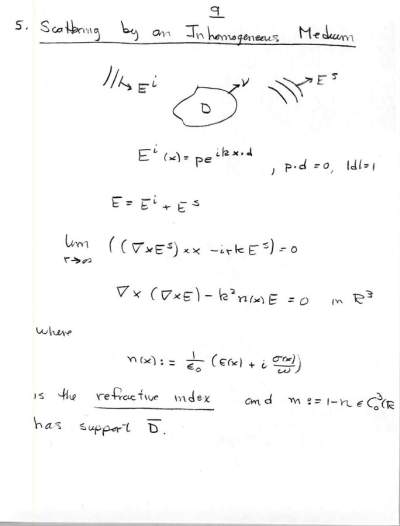 9
5. Scattering by an Inhomogeneous Medium
E^i
D
ν
E^s
E^i(x) = pe^{ikx·d} , p·d = 0, |d|=1
E = E^i + E^s
lim r→∞ ((∇×E^s)×x − irkE^s) = 0
∇×(∇×E) − k²n(x)E = 0 in R³
where
n(x) := 1/ε₀ (ε(x) + i σ(x)/ω)
is the refractive index and m := 1−n ∈ C₀³(R
has support D̄.